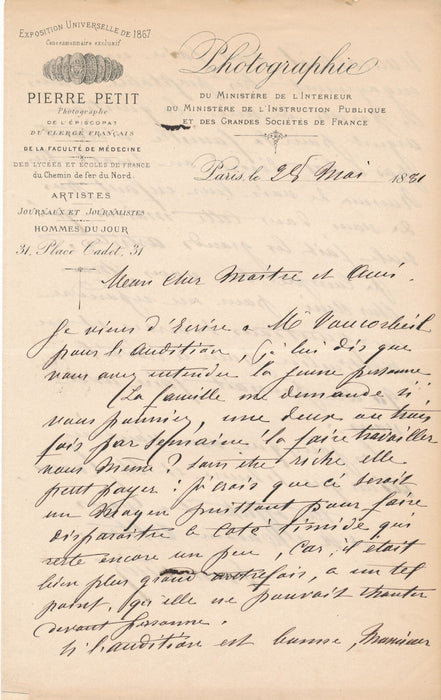 EXPOSITION UNIVERSELLE DE 1867
Concessionnaire exclusif
PIERRE PETIT
Photographe
DE L'ÉPISCOPAT
DU CLERGÉ FRANÇAIS
DE LA FACULTÉ DE MÉDECINE
DES LYCÉES ET ÉCOLES DE FRANCE
du Chemin de fer du Nord
ARTISTES
JOURNAUX ET JOURNALISTES
HOMMES DU JOUR
31, Place Cadet, 31
Photographie
DU MINISTÈRE DE L'INTÉRIEUR
DU MINISTÈRE DE L'INSTRUCTION PUBLIQUE
ET DES GRANDES SOCIÉTÉS DE FRANCE
Paris, le 25 Mai 1881
Mon cher Maître et Ami.
Je viens d'écrire a Mr Vaucorbeil
pour l'audition, je lui dis que
vous avez entendu la jeune personne
(La famille me demande si
vous pouviez, une deux ou trois
fois par Semaine la faire travailler
vous même? sans être riche elle
peut payer: je crois que ce serait
un Moyen puissant pour faire
disparaitre le coté timide qui
reste encore un peu, car, il était
bien plus grand autrefois, a un tel
point, qu'elle ne pouvait chanter
devant personne.
Si l'audition est bonne, Monsieur